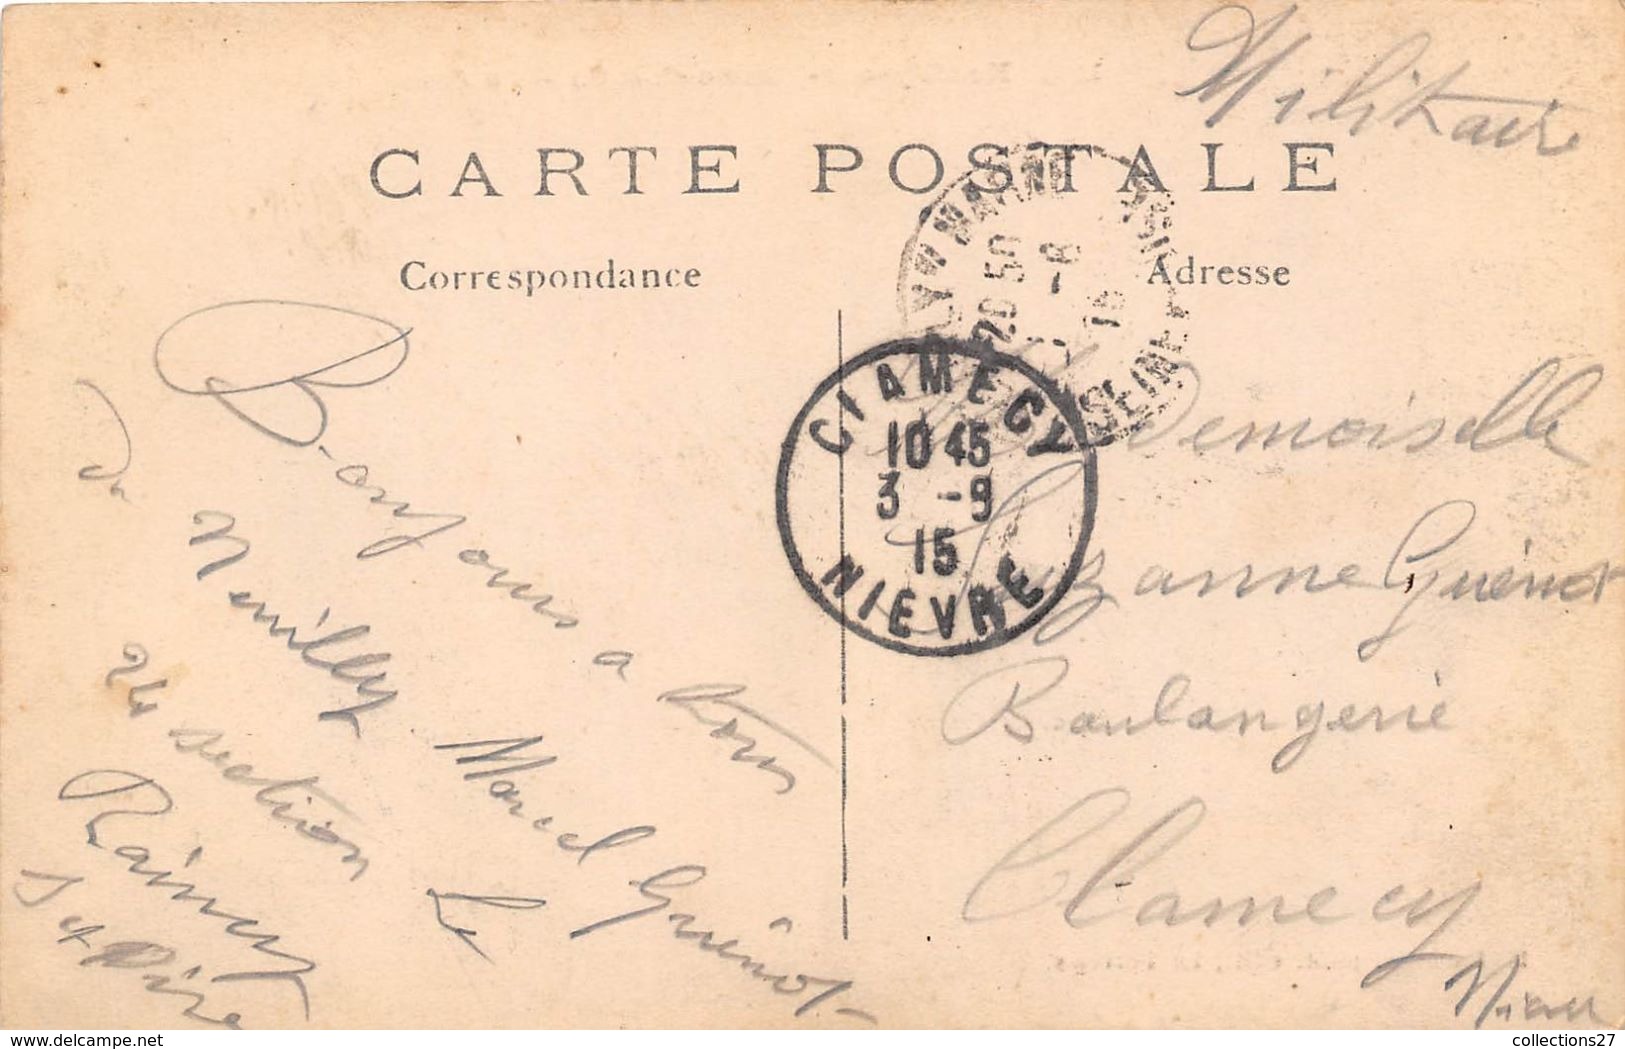 Militaire
CARTE POSTALE
Correspondance
Adresse
MARNE
20 50
-8
15
SEINE
CLAMECY
10 45
3 -9
15
NIEVRE
Bonjour a tous
de Neuilly Marcel Guénot
24e section Le
Raincy
Set Oise
Demoiselle
Suzanne Guénot
Boulangerie
Clamecy
Nièvre
www.delcampe.net
collections27